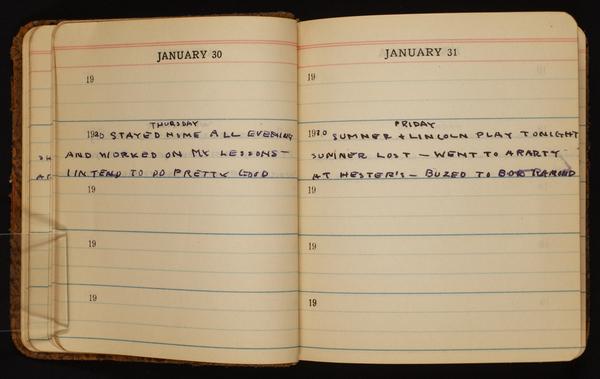 JANUARY 30
19
THURSDAY
1920 STAYED HOME ALL EVENING
AND WORKED ON MY LESSONS—
I INTEND TO DO PRETTY GOOD
19
19
19
JANUARY 31
19
FRIDAY
1920 SUMNER + LINCOLN PLAY TONIGHT
SUMNER LOST — WENT TO A PARTY
AT HESTER'S — BUZED TO BOB
19
19
19